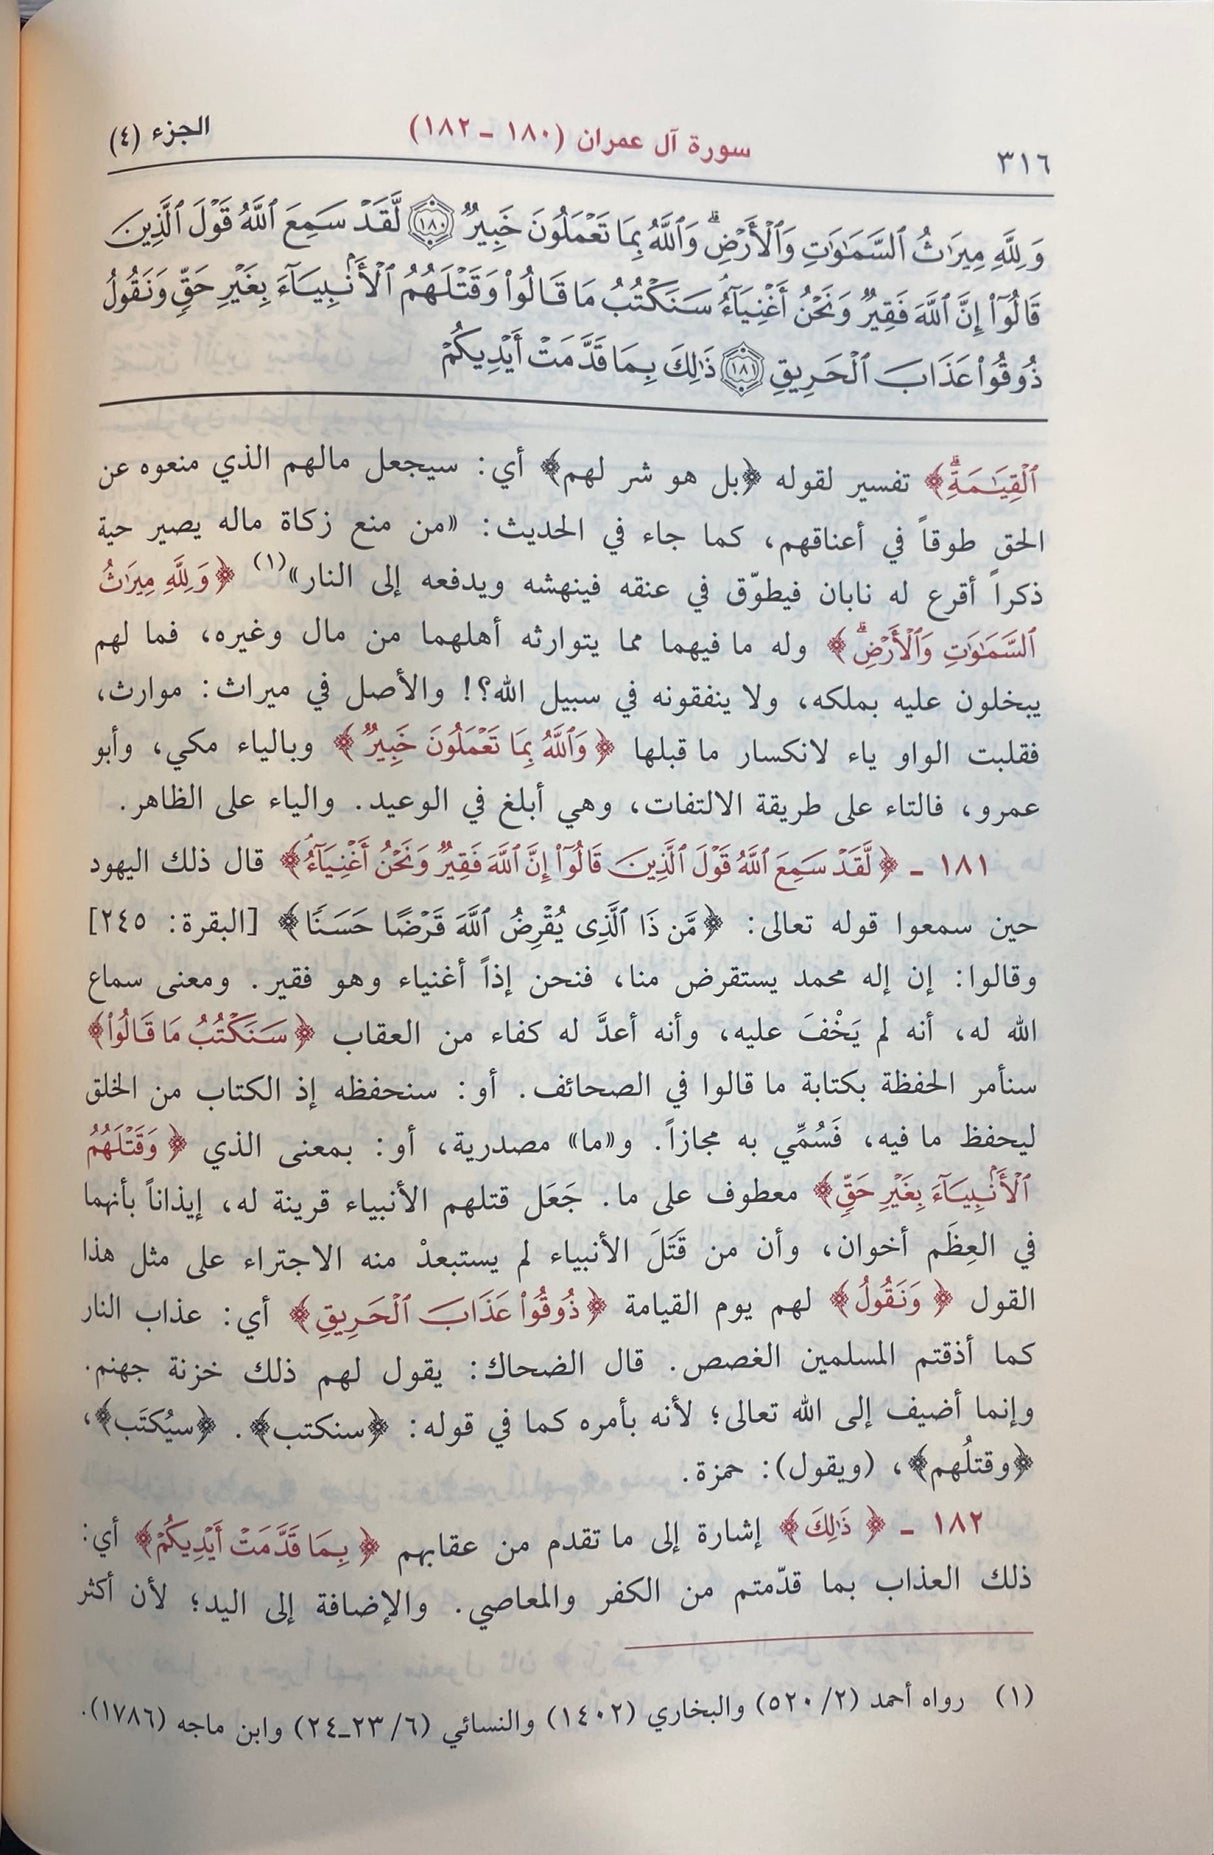 ٣١٦ سورة آل عمران (١٨٠ - ١٨٢) الجزء (٤)
وَلِلَّهِ مِيرَٰثُ ٱلسَّمَٰوَٰتِ وَٱلْأَرْضِ ۗ وَٱللَّهُ بِمَا تَعْمَلُونَ خَبِيرٌ ١٨٠ لَّقَدْ سَمِعَ ٱللَّهُ قَوْلَ ٱلَّذِينَ
قَالُوٓا۟ إِنَّ ٱللَّهَ فَقِيرٌ وَنَحْنُ أَغْنِيَآءُ ۘ سَنَكْتُبُ مَا قَالُوا۟ وَقَتْلَهُمُ ٱلْأَنۢبِيَآءَ بِغَيْرِ حَقٍّ وَنَقُولُ
ذُوقُوا۟ عَذَابَ ٱلْحَرِيقِ ١٨١ ذَٰلِكَ بِمَا قَدَّمَتْ أَيْدِيكُمْ
ٱلْقِيَٰمَةِ ۗ﴾ تفسير لقوله ﴿بل هو شر لهم﴾ أي: سيجعل مالهم الذي منعوه عن
الحق طوقاً في أعناقهم، كما جاء في الحديث: «من منع زكاة ماله يصير حية
ذكراً أقرع له نابان فيطوّق في عنقه فينهشه ويدفعه إلى النار»(١) ﴿وَلِلَّهِ مِيرَٰثُ
ٱلسَّمَٰوَٰتِ وَٱلْأَرْضِ ۗ﴾ وله ما فيهما مما يتوارثه أهلهما من مال وغيره، فما لهم
يبخلون عليه بملكه، ولا ينفقونه في سبيل الله؟! والأصل في ميراث: موارث،
فقلبت الواو ياء لانكسار ما قبلها ﴿وَٱللَّهُ بِمَا تَعْمَلُونَ خَبِيرٌ﴾ وبالياء مكي، وأبو
عمرو، فالتاء على طريقة الالتفات، وهي أبلغ في الوعيد. والياء على الظاهر.
١٨١ - ﴿لَّقَدْ سَمِعَ ٱللَّهُ قَوْلَ ٱلَّذِينَ قَالُوٓا۟ إِنَّ ٱللَّهَ فَقِيرٌ وَنَحْنُ أَغْنِيَآءُ ۘ﴾ قال ذلك اليهود
حين سمعوا قوله تعالى: ﴿مَّن ذَا ٱلَّذِى يُقْرِضُ ٱللَّهَ قَرْضًا حَسَنًا﴾ [البقرة: ٢٤٥]
وقالوا: إن إله محمد يستقرض منا، فنحن إذاً أغنياء وهو فقير. ومعنى سماع
الله له، أنه لم يَخْفَ عليه، وأنه أعدَّ له كفاء من العقاب ﴿سَنَكْتُبُ مَا قَالُوا۟﴾
سنأمر الحفظة بكتابة ما قالوا في الصحائف. أو: سنحفظه إذ الكتاب من الخلق
ليحفظ ما فيه، فَسُمِّي به مجازاً. و«ما» مصدرية، أو: بمعنى الذي ﴿وَقَتْلَهُمُ
ٱلْأَنۢبِيَآءَ بِغَيْرِ حَقٍّ﴾ معطوف على ما. جَعَل قتلهم الأنبياء قرينة له، إيذاناً بأنهما
في العِظَم أخوان، وأن من قَتَلَ الأنبياء لم يستبعدْ منه الاجتراء على مثل هذا
القول ﴿وَنَقُولُ﴾ لهم يوم القيامة ﴿ذُوقُوا۟ عَذَابَ ٱلْحَرِيقِ﴾ أي: عذاب النار
كما أذقتم المسلمين الغصص. قال الضحاك: يقول لهم ذلك خزنة جهنم.
وإنما أضيف إلى الله تعالى؛ لأنه بأمره كما في قوله: ﴿سنكتب﴾. ﴿سيُكتَب﴾،
﴿وقتلُهم﴾، (ويقول): حمزة.
١٨٢ - ﴿ذَٰلِكَ﴾ إشارة إلى ما تقدم من عقابهم ﴿بِمَا قَدَّمَتْ أَيْدِيكُمْ﴾ أي:
ذلك العذاب بما قدّمتم من الكفر والمعاصي. والإضافة إلى اليد؛ لأن أكثر
(١) رواه أحمد (٢/ ٥٢٠) والبخاري (١٤٠٢) والنسائي (٦/ ٢٣-٢٤) وابن ماجه (١٧٨٦).